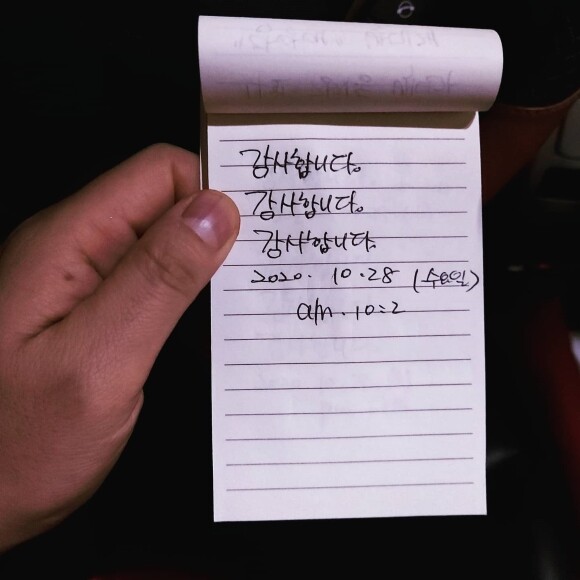 감사합니다。
감사합니다。
감사합니다。
2020. 10.28 (수요일)
am. 10:2